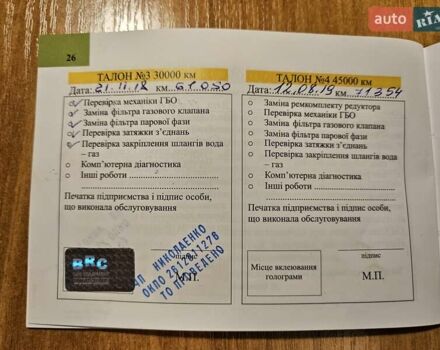 auto
RIA
26
ТАЛОН №3 30000 км
Дата: 21.11.18 км 61.050
Перевірка механіки ГБО
Заміна фільтра газового клапана
Заміна фільтра парової фази
Перевірка затяжки з'єднань
Перевірка закріплення шлангів вода
– газ
Комп'ютерна діагностика
Інші роботи
Печатка підприємства і підпис особи,
що виконала обслуговування
підпис
М.П.
BRC
ЧП НИКОЛАЕНКО
ОКПО
ТО ПРОВЕДЕНО
ТАЛОН №4 45000 км
Дата: 12.08.19 км. 71354
Заміна ремкомплекту редуктора
Перевірка механіки ГБО
Заміна фільтра газового клапана
Заміна фільтра парової фази
Перевірка затяжки з'єднань
Перевірка закріплення шлангів вода
– газ
Комп'ютерна діагностика
Інші роботи
Печатка підприємства і підпис особи,
що виконала обслуговування
підпис
Місце вклеювання
голограми
М.П.